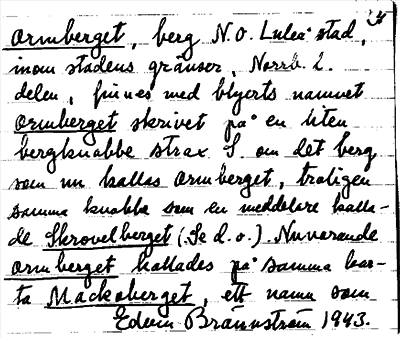 Ormberget, berg N.O. Luleå stad,
inom stadens gränser, Norrb. l.
delen, finnes med blyerts namnet
Ormberget skrivet på en liten
bergknabbe strax S. om det berg
som nu kallas Ormberget, troligen
samma knabbe som en meddelare kalla-
de Skrovelberget (Se d.o.). Nuvarande
Ormberget kallades på samma kar-
ta Mackaberget, ett namn som
Edvin Brännström 1943.